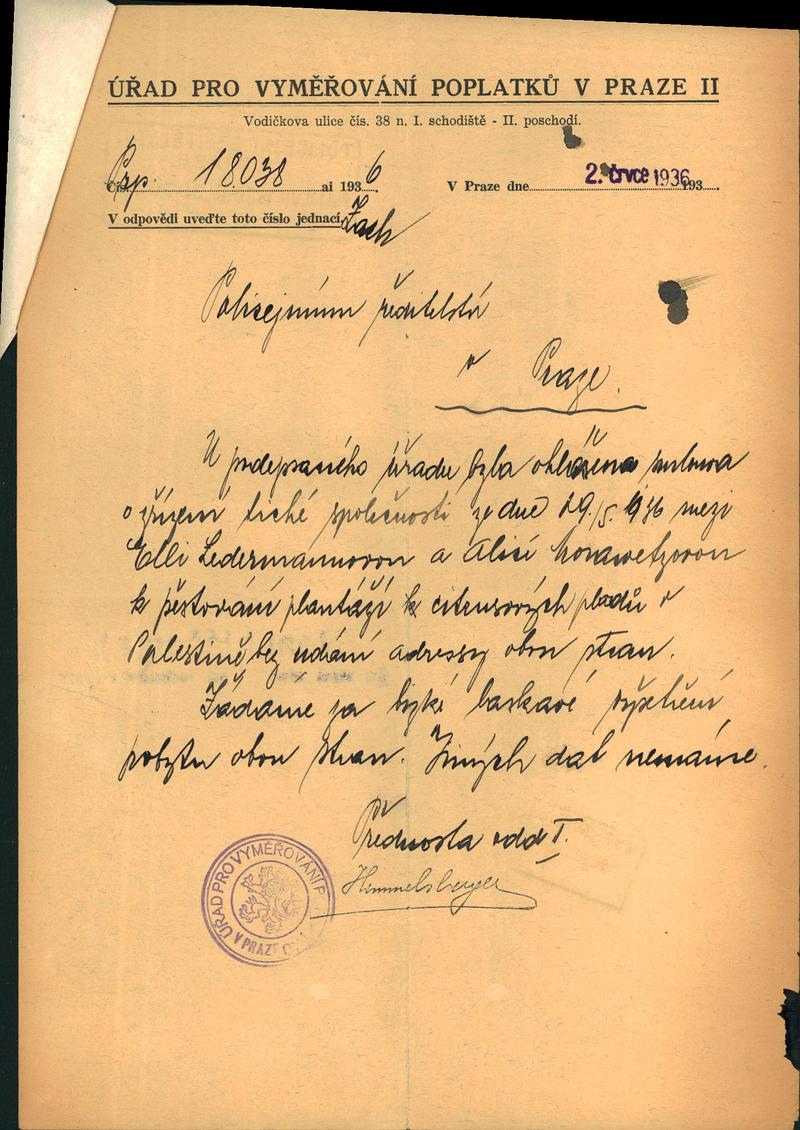 ÚŘAD PRO VYMĚŘOVÁNÍ POPLATKŮ V PRAZE II
Vodičkova ulice čís. 38 n. I. schodiště - II. poschodí.
Čís. 18.038 ai 1936
V Praze dne 2. črvce 1936 193
V odpovědi uveďte toto číslo jednací.
Policejnímu ředitelství
v Praze.
U podepsaného úřadu byla ohlášena smlouva
o zřízení tiché společnosti ze dne 29./5. 1936 mezi
Elli Ledermannovou a Alicí Morawetzovou
k pěstování plantáží citrusových plodů v
Palestině bez udání adressy obou stran.
Žádáme za brzké laskavé vyšetření
pobytu obou stran. Jiných dat nemáme.
Přednosta odd I.
Himmelsberger
ÚŘAD PRO VYMĚŘOVÁNÍ P
V PRAZE